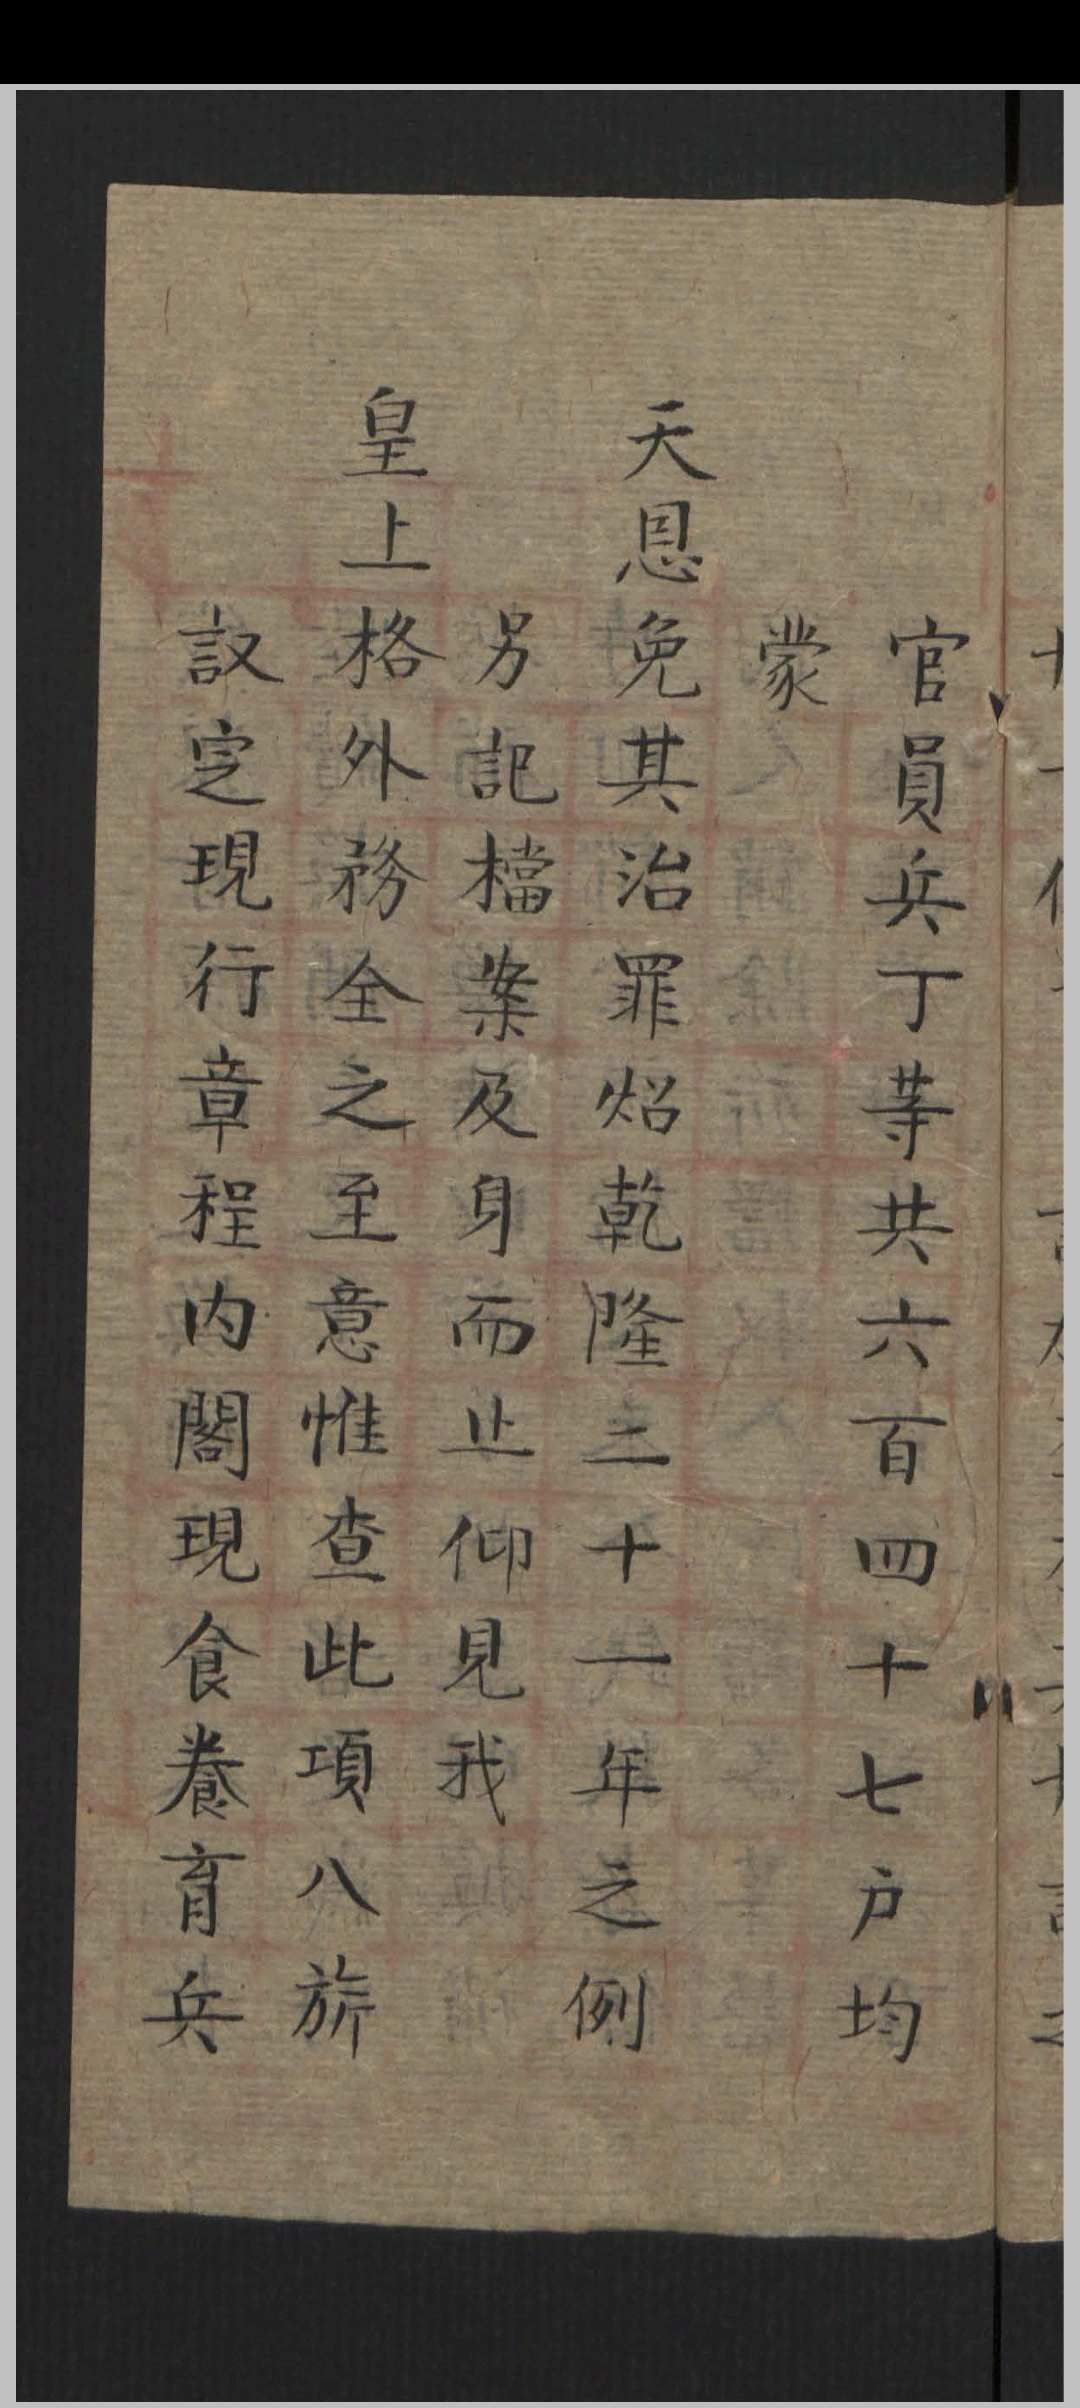 官員兵丁等共六百四十七户均
蒙
天恩免其治罪炤乾隆二十一年之例
另記檔案及身而止仰見我
皇上格外務全之至意惟查此項八旂
議定現行章程内閣現食養育兵